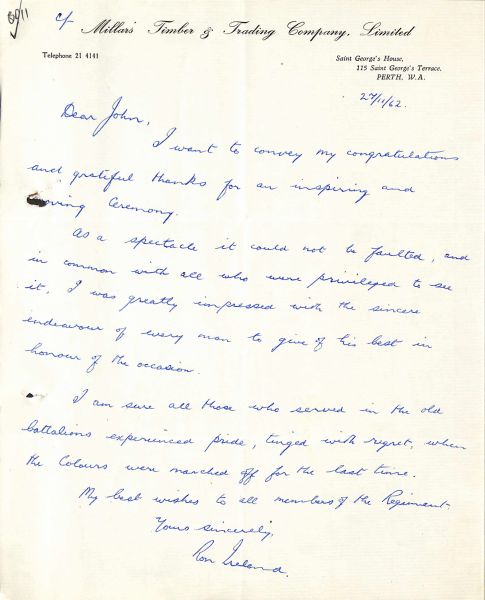 c/- Millars' Timber & Trading Company, Limited
Telephone 21 4141
Saint George's House,
115 Saint George's Terrace,
PERTH, W.A.
27/11/62.
Dear John,
I want to convey my congratulations
and grateful thanks for an inspiring and
moving Ceremony.
As a spectacle it could not be faulted, and
in common with all who were privileged to see
it, I was greatly impressed with the sincere
endeavour of every man to give of his best in
honour of the occasion.
I am sure all those who served in the old
battalions experienced pride, tinged with regret, when
the Colours were marched off for the last time.
My best wishes to all members of the Regiment.
Yours sincerely,
Ron Ireland.